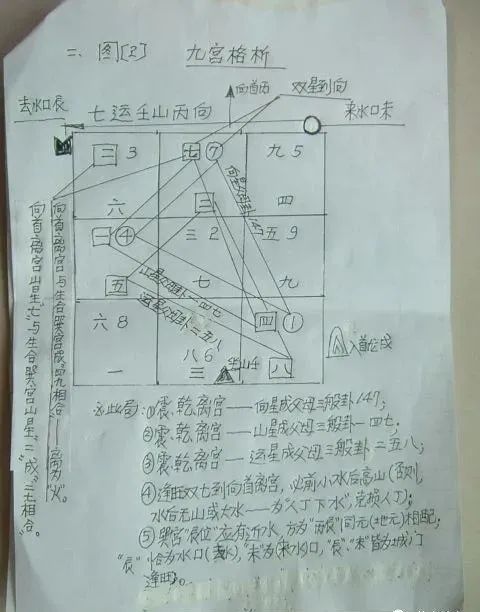 二、图[2] 九宫格析
向首丙
双星到向
去水口辰
来水口未
七运壬山丙向
三 3
七 ⑦
九 5
六
三
四
一 ④
三 2
五 9
五
七
九
六 8
八 6
四 ①
一
三
八
坐山壬
向星父母卦147
山星父母卦一四七
运星父母卦二五八
向首离宫与生合巽宫成
相合——离为"火"。
向首离宫山星"七"与生合巽宫山星"三"成"二七相合"。
入首
此局:①震、乾、离宫——向星成父母三般卦147;
②震、乾、离宫——山星成父母三般卦一四七;
③震、乾、离宫——运星成父母三般卦二五八;
④逢旺双七到向首离宫,必前小水后高山(否则,
水后无山或大水——为"人丁下水",克损人丁;
⑤巽宫"辰位"应有近水,方为"丙辰"同元(地元)相配;
"辰"恰为水口(去水),"未"为来水口,"辰""未"皆为城门
逢旺。